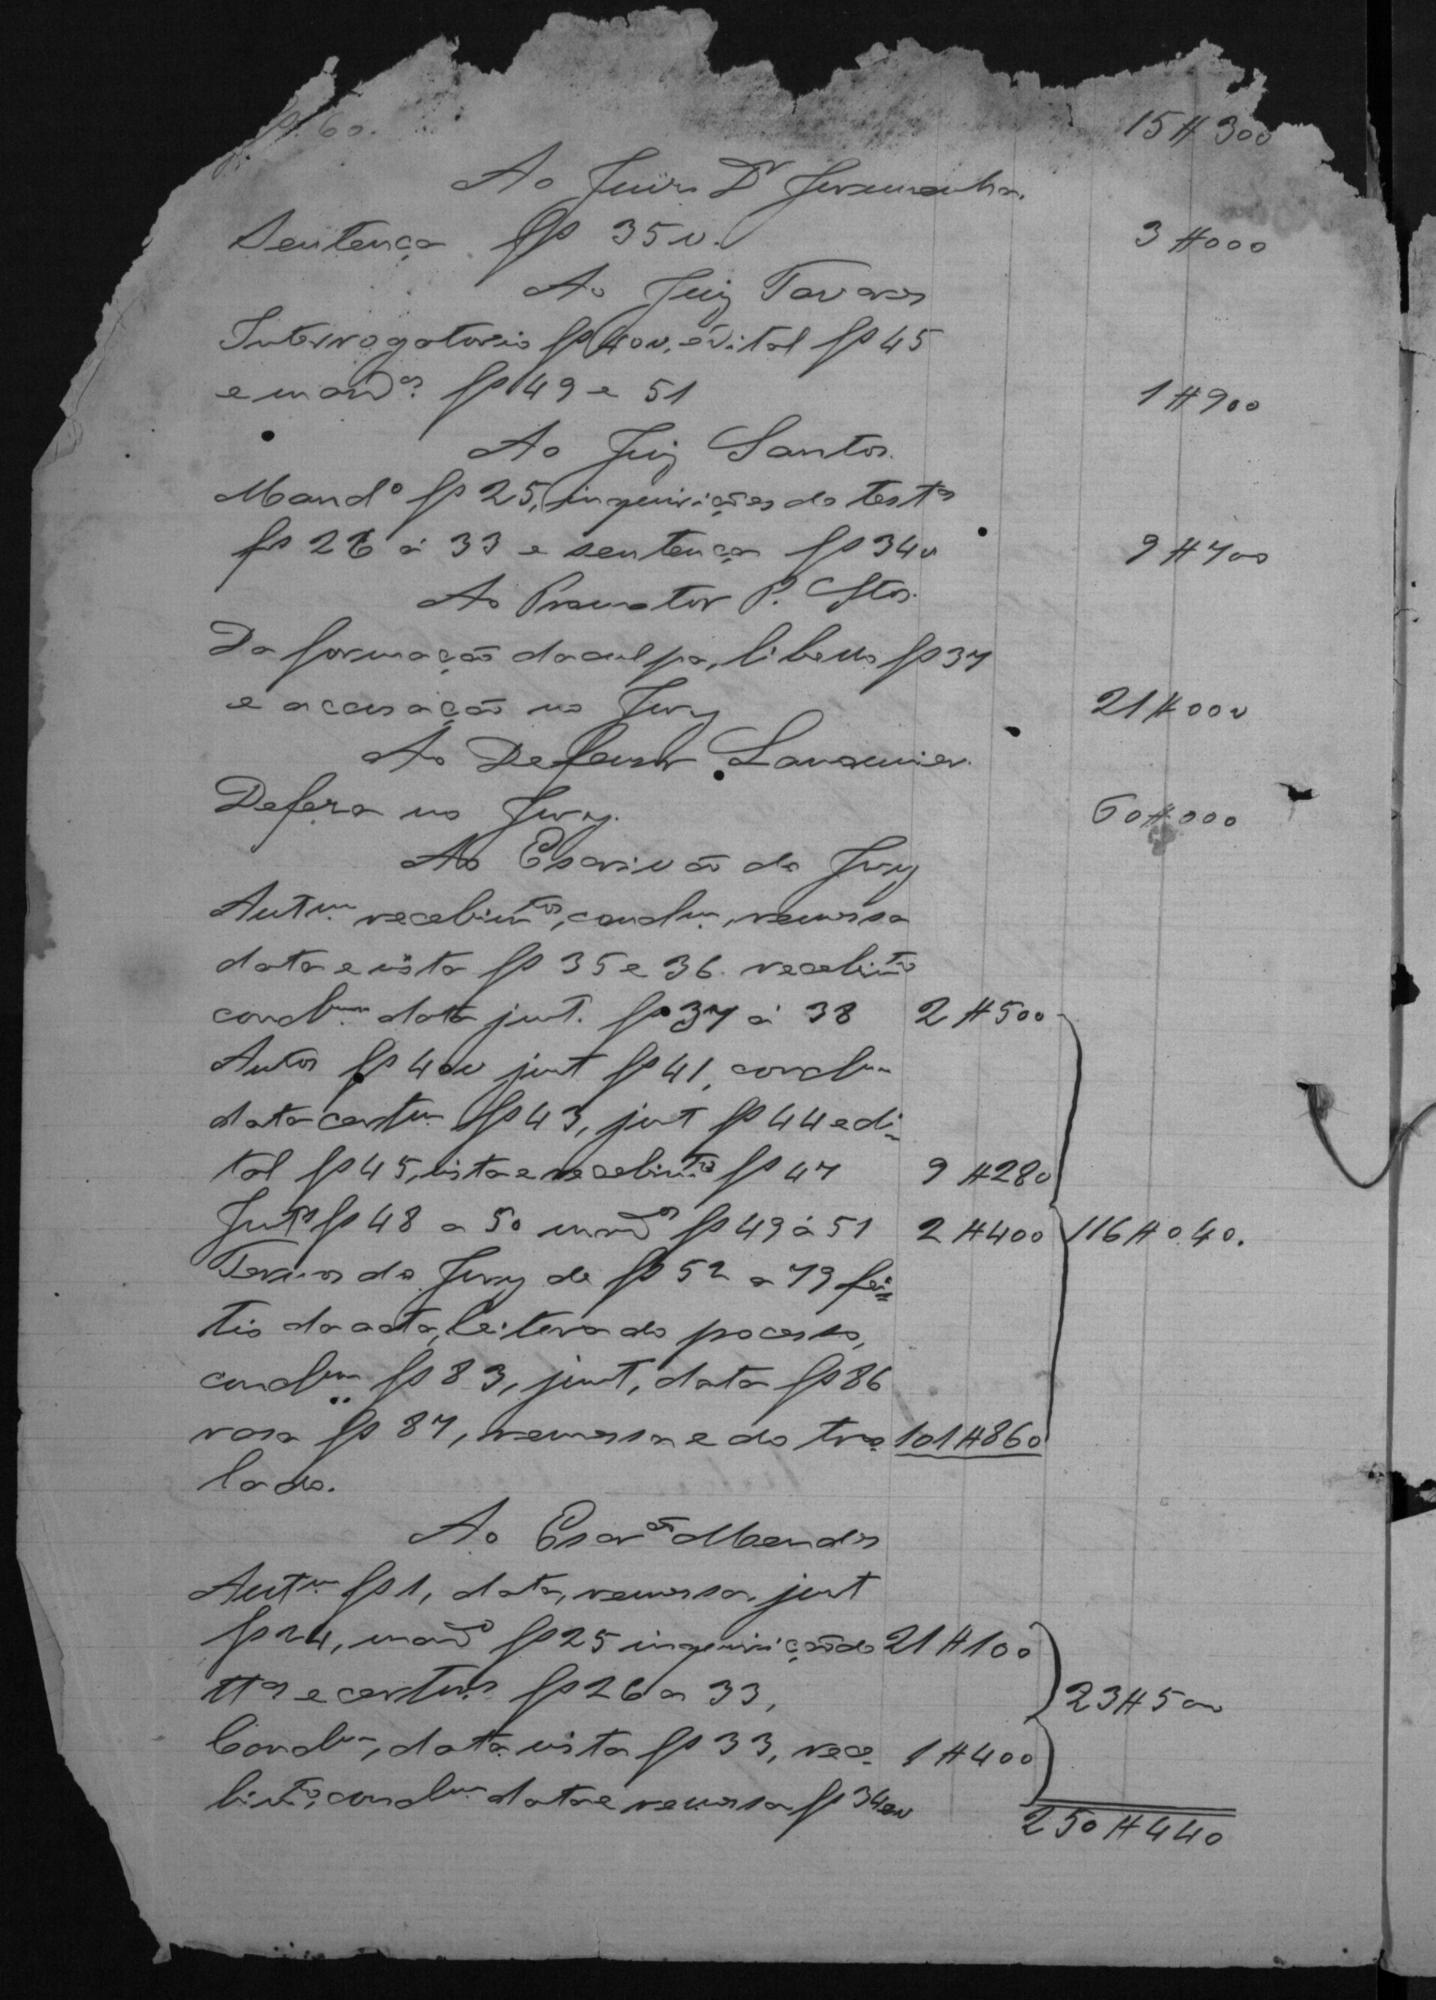 fs 60. 15#300
Ao Juiz Dr Jurumenha.
Sentença fs 35v. 3#000
Ao Juiz Tavares
Interrogatorio fs 40v, edital fs 45
e mandos fs 49 e 51 1#900
Ao Juiz Santos.
Mando fs 25, inquirições de testas
fs 26 á 33 e sentença fs 34v 9#700
Ao Promotor P.
Da formação da culpa, libello fs 37
e accusação no Jury 21#000
Ao Defensor
Defeza no Jury. 60#000
Ao Escrivão do Jury
Autm recebimtos, conclm, remessa
data e vista fs 35 e 36. recebimto
conclm data junt. fs 37 á 38 2#500
Autos fs 40v junt fs 41, conclm
data certm fs 43, junt fs 44 edi-
tal fs 45, vista e recebimto fs 47 9#280
Juntas fs 48 a 50 mandos fs 49 á 51 2#400 116#040.
Termos do Jury de fs 52 a 79 fei-
tio da acta, leitura do pocesso,
conclm fs 83, junt, data fs 86
rasa fs 87, remessa e do tras 101#860
lado.
Ao Escrão Mendes
Autm fs 1, data, remessa, junt
fs 24, mando fs 25 inquirição de 21#100
ttas e certms fs 26 a 33, 23#500
Conclm, data vista fs 33, rece- 1#400
bimto, conclm data e remessa fs 34 e v
250#440